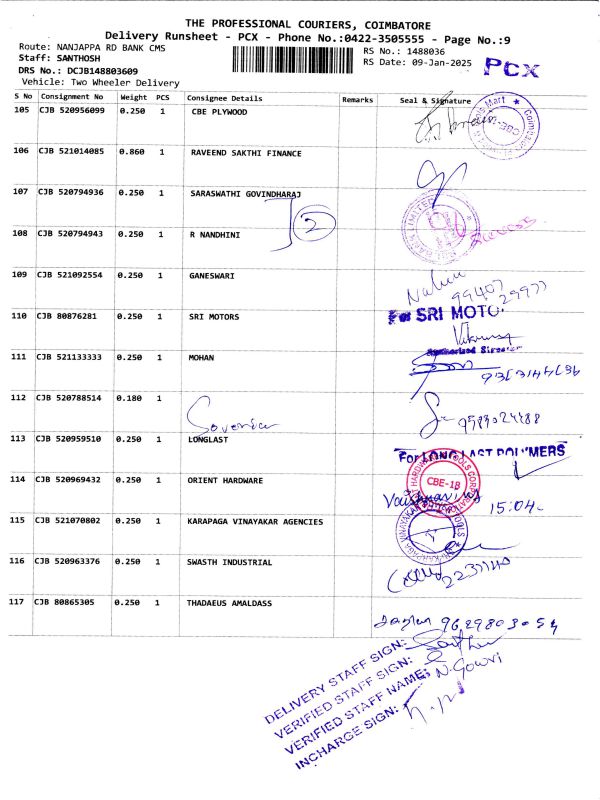 THE PROFESSIONAL COURIERS, COIMBATORE
Delivery Runsheet - PCX - Phone No.:0422-3505555 - Page No.:9
Route: NANJAPPA RD BANK CMS
Staff: SANTHOSH
DRS No.: DCJB148803609
Vehicle: Two Wheeler Delivery
RS No.: 1488036
RS Date: 09-Jan-2025
PCX
S No Consignment No Weight PCS Consignee Details Remarks Seal & Signature
105 CJB 520956099 0.250 1 CBE PLYWOOD
106 CJB 521014085 0.860 1 RAVEEND SAKTHI FINANCE
107 CJB 520794936 0.250 1 SARASWATHI GOVINDHARAJ
2
108 CJB 520794943 0.250 1 R NANDHINI
109 CJB 521092554 0.250 1 GANESWARI
99407
29977
110 CJB 80876281 0.250 1 SRI MOTORS
For SRI MOTO
Authorized
111 CJB 521133333 0.250 1 MOHAN
112 CJB 520788514 0.180 1
113 CJB 520959510 0.250 1 LONGLAST
For LONG LAST POLYMERS
114 CJB 520969432 0.250 1 ORIENT HARDWARE
CBE-18
15:04
115 CJB 521070802 0.250 1 KARAPAGA VINAYAKAR AGENCIES
116 CJB 520963376 0.250 1 SWASTH INDUSTRIAL
117 CJB 80865305 0.250 1 THADAEUS AMALDASS
9629803054
DELIVERY STAFF SIGN:
VERIFIED STAFF SIGN:
VERIFIED STAFF NAME: N. Gowri
INCHARGE SIGN: